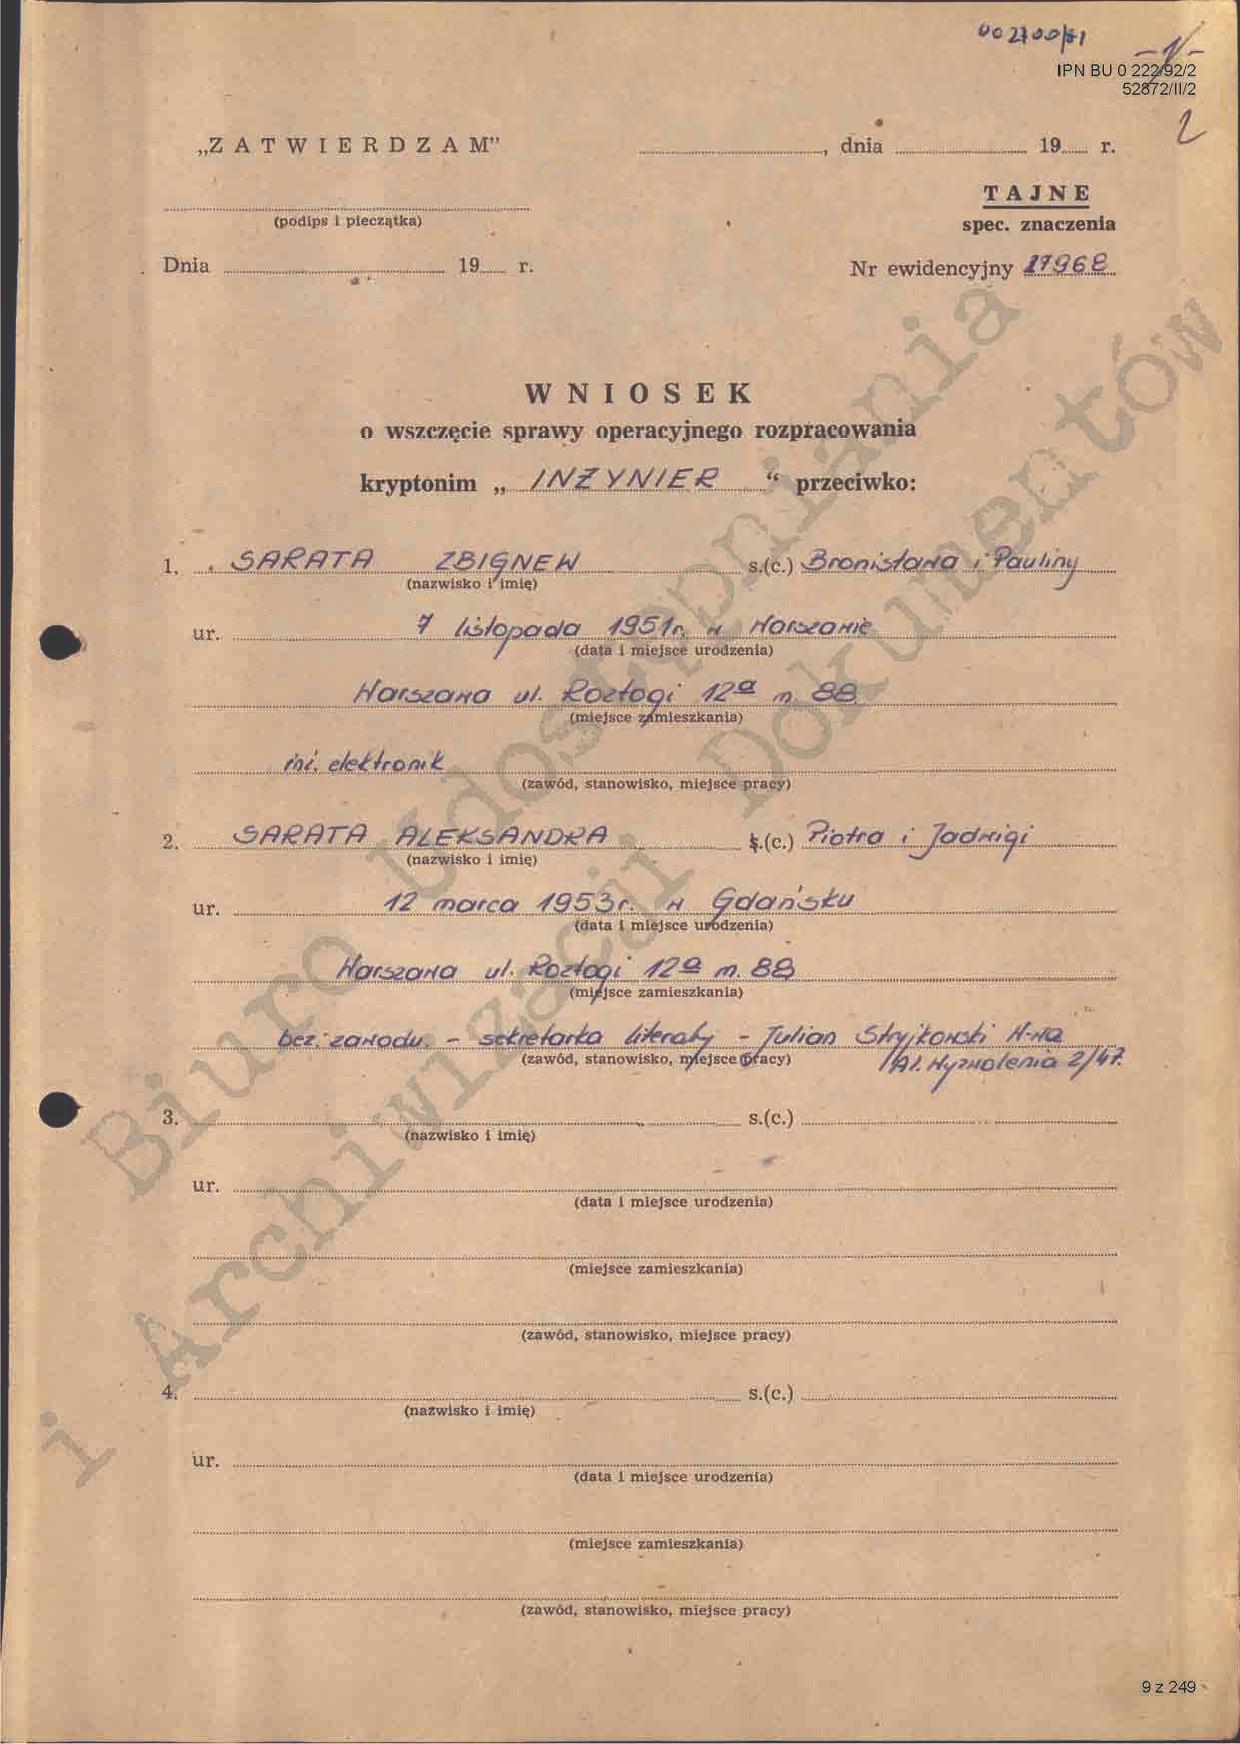 002700/81
-1-
IPN BU 0 222/92/2
52872/II/2
2
„ZATWIERDZAM” , dnia 19 r.
TAJNE
(podips i pieczątka)
spec. znaczenia
Dnia 19 r.
Nr ewidencyjny 27968
WNIOSEK
o wszczęcie sprawy operacyjnego rozpracowania
kryptonim „ INŻYNIER “ przeciwko:
1. SARATA ZBIGNEW s.(c.) Bronisława i Pauliny
(nazwisko i imię)
ur. 7 listopada 1951r. w Warszawie
(data i miejsce urodzenia)
Warszawa ul. Rozłogi 12a m. 88
(miejsce zamieszkania)
inż. elektronik
(zawód, stanowisko, miejsce pracy)
2. SARATA ALEKSANDRA s.(c.) Piotra i Jadwigi
(nazwisko i imię)
ur. 12 marca 1953r. w Gdańsku
(data i miejsce urodzenia)
Warszawa ul. Rozłogi 12a m. 88
(miejsce zamieszkania)
bez. zawodu. - sekretarka literaty - Julian Stryjkowski W-wa
(zawód, stanowisko, miejsce pracy) Al. Wyzwolenia 2/47.
3. s.(c.)
(nazwisko i imię)
ur.
(data i miejsce urodzenia)
(miejsce zamieszkania)
(zawód, stanowisko, miejsce pracy)
4. s.(c.)
(nazwisko i imię)
ur.
(data i miejsce urodzenia)
(miejsce zamieszkania)
(zawód, stanowisko, miejsce pracy)
Biuro Udostępniania
i Archiwizacji Dokumentów
9 z 249